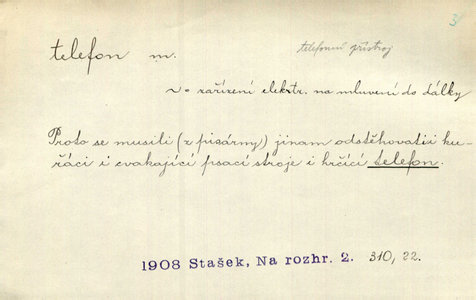 3
telefon m. telefonní přístroj
~ zařízení elektr. na mluvení do dálky
Proto se musili (z pisárny) jinam odstěhovati i ku-
řáci i cvakající psací stroje i hrčící telefon.
1908 Stašek, Na rozhr. 2. 310, 22.